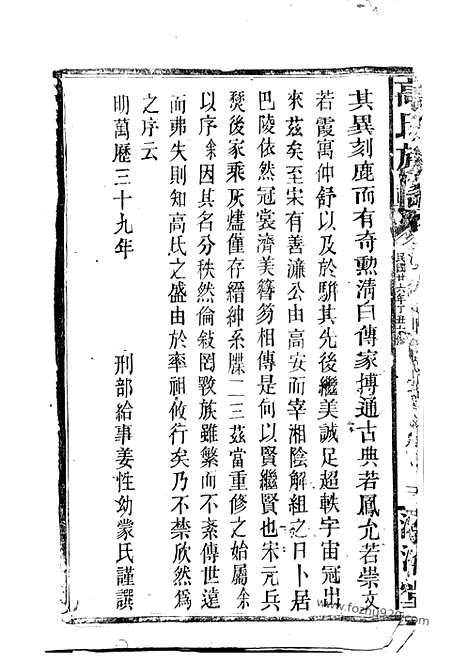 其異刻鹿而有奇勳清白傳家搏通古典若鳳允若崇文
若霞寓仲舒以及於駢其先後繼美誠足超軼宇宙冠出
來茲矣至宋有善濂公由高安而宰湘陰解組之日卜居
巴陵依然冠裳濟美簪笏相傳是何以賢繼賢也宋元兵
燹後家乘灰燼僅存縉紳系牒二三茲當重修之始屬余
以序余因其名分秩然倫敘罔斁族雖繁而不紊傳世遠
而弗失則知高氏之盛由於率祖攸行矣乃不禁欣然為
之序云
明萬歷三十九年 刑部給事姜性幼蒙氏謹譔
高氏族譜
民國廿六年丁丑六修
www.fozhu920.com